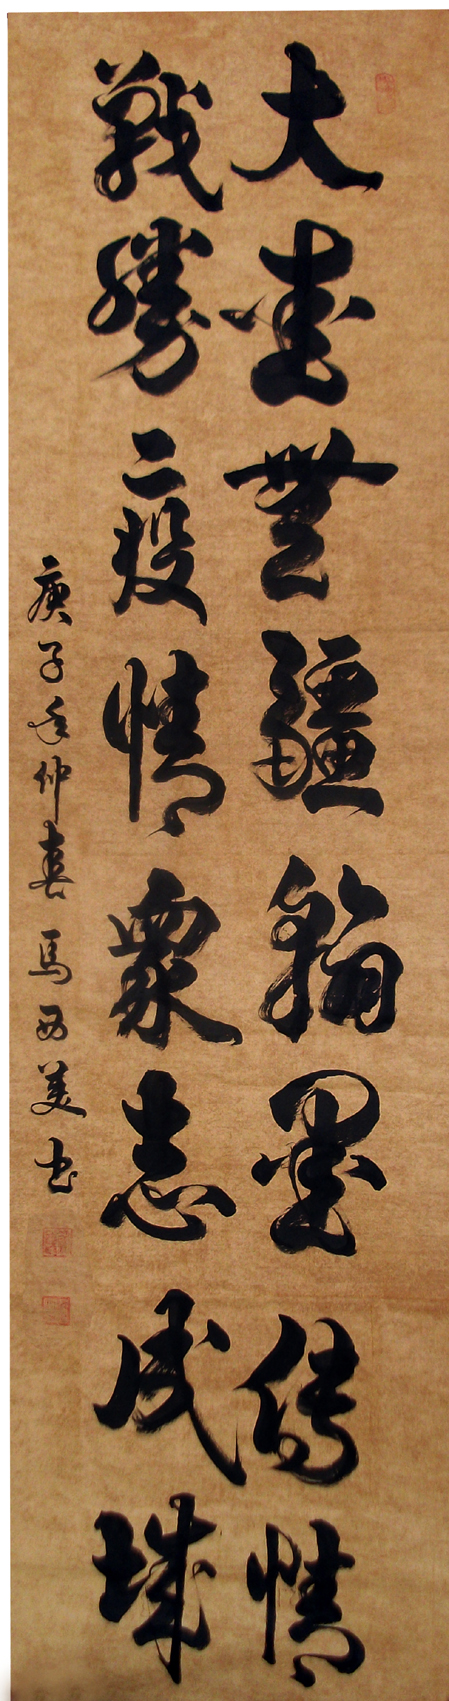 大愛無疆翰墨傳情
戰勝疫情衆志成城
庚子年仲 馬西美書